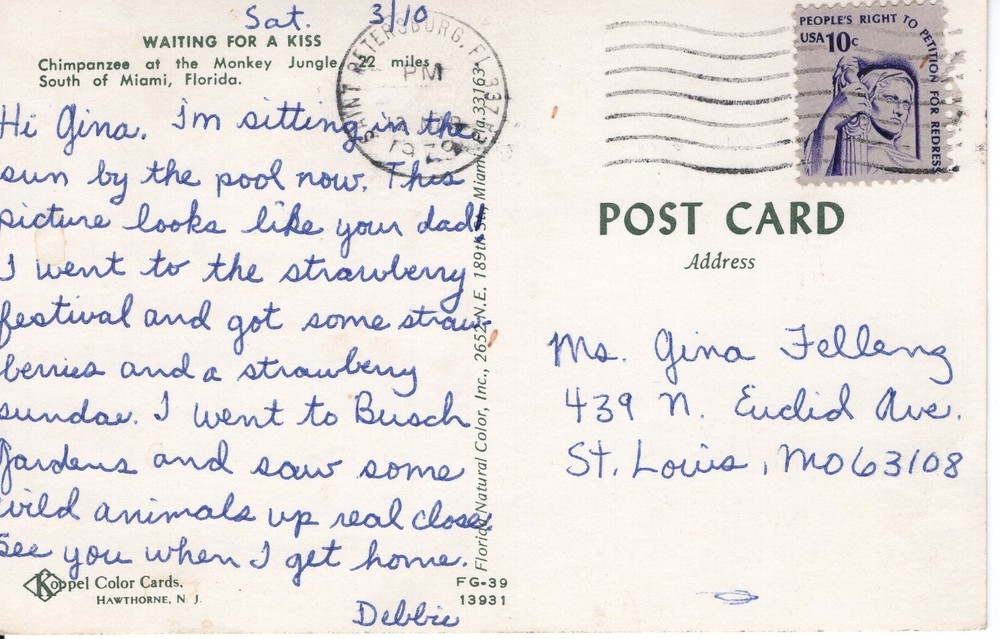 Sat. 3/10
WAITING FOR A KISS
Chimpanzee at the Monkey Jungle, 22 miles
South of Miami, Florida.
Hi Gina. I'm sitting in the
sun by the pool now. This
picture looks like your dad!
I went to the strawberry
festival and got some straw-
berries and a strawberry
sundae. I went to Busch
Gardens and saw some
wild animals up real close.
See you when I get home.
Debbie
Koppel Color Cards.
HAWTHORNE, N. J.
FG-39
13931
Florida Natural Color, Inc., 2652 N.E. 189th St., Miami, Fla. 33163
SAINT PETERSBURG, FL 337
PM
1979
PEOPLE'S RIGHT TO PETITION FOR REDRESS
USA 10c
POST CARD
Address
Ms. Gina Fellenz
439 N. Euclid Ave.
St. Louis, MO 63108